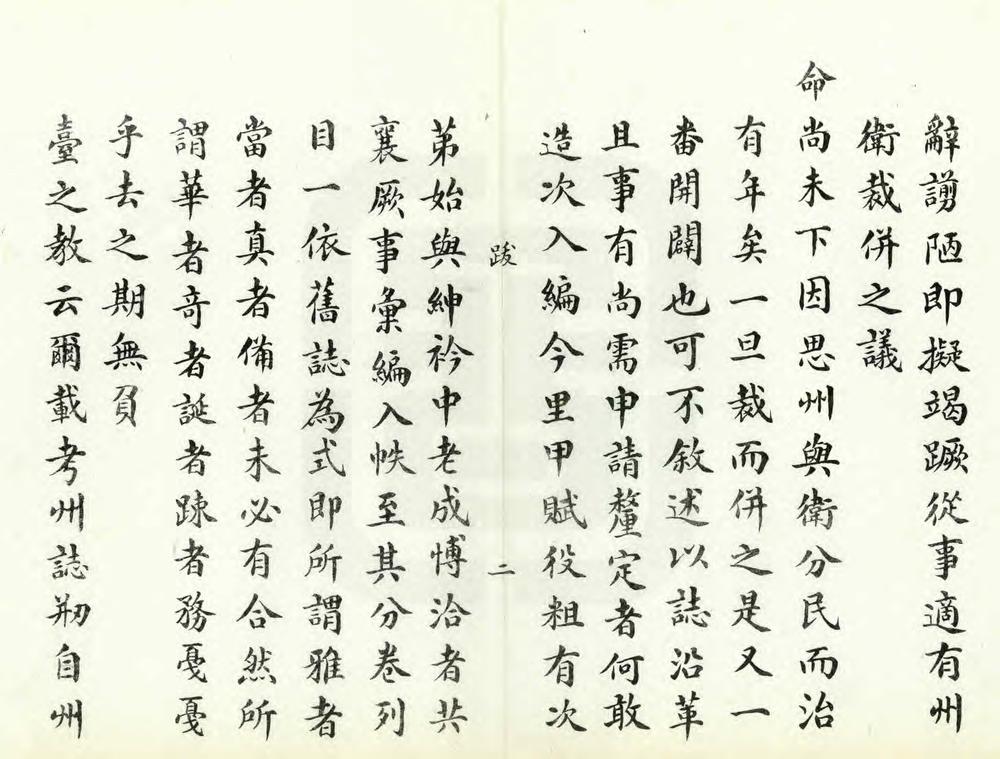 辭謭陋即擬竭蹶從事適有州
衛裁併之議
命尚未下因思州與衛分民而治
有年矣一旦裁而併之是又一
番開闢也可不敘述以誌沿革
且事有尚需申請釐定者何敢
造次入編今里甲賦役粗有次
跋
二
苐始與紳衿中老成愽洽者共
襄厥事彙編入帙至其分卷列
目一依舊誌為式即所謂雅者
當者真者備者未必有合然所
謂華者竒者誕者踈者務戞戞
乎去之期無負
臺之教云爾載考州誌剏自州